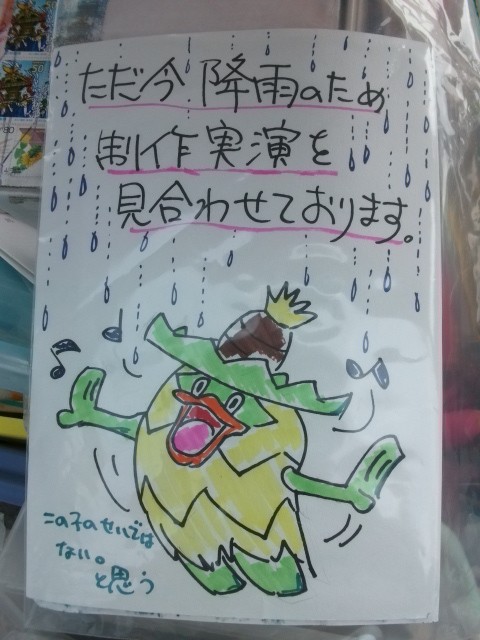 ただ今 降雨のため
制作実演を
見合わせております。
この子のせいでは
ない。
と思う